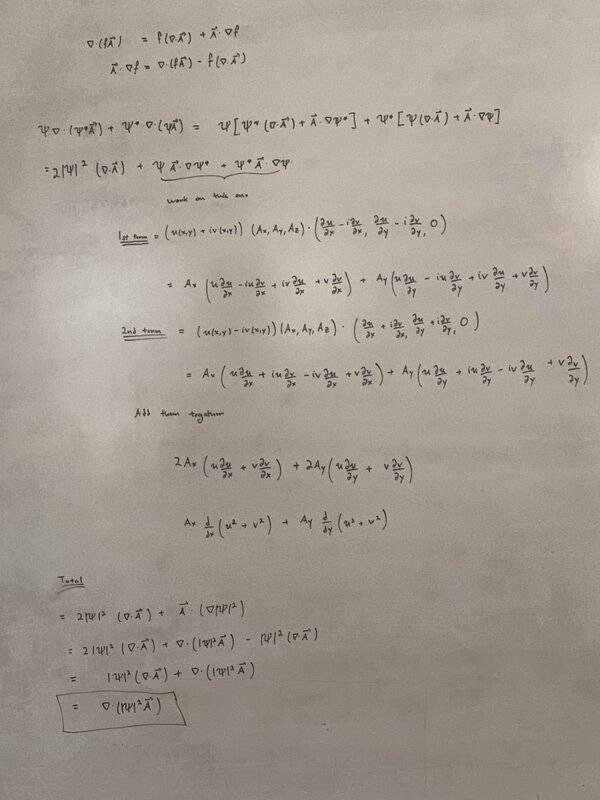 ∇·(fA⃗) = f(∇·A⃗) + A⃗·∇f
A⃗·∇f = ∇·(fA⃗) - f(∇·A⃗)
Ψ∇·(Ψ*A⃗) + Ψ*∇·(ΨA⃗) = Ψ[Ψ*(∇·A⃗) + A⃗·∇Ψ*] + Ψ*[Ψ(∇·A⃗) + A⃗·∇Ψ]
= 2|Ψ|² (∇·A⃗) + Ψ A⃗·∇Ψ* + Ψ* A⃗·∇Ψ
work on this one
1st term = (u(x,y) + iv(x,y)) (Ax, Ay, Az) · (∂u/∂x - i∂v/∂x, ∂u/∂y - i∂v/∂y, 0)
= Ax (u∂u/∂x - iu∂v/∂x + iv∂u/∂x + v∂v/∂x) + Ay (u∂u/∂y - iu∂v/∂y + iv∂u/∂y + v∂v/∂y)
2nd term = (u(x,y) - iv(x,y)) (Ax, Ay, Az) · (∂u/∂x + i∂v/∂x, ∂u/∂y + i∂v/∂y, 0)
= Ax (u∂u/∂x + iu∂v/∂x - iv∂u/∂x + v∂v/∂x) + Ay (u∂u/∂y + iu∂v/∂y - iv∂u/∂y + v∂v/∂y)
Add them together
2Ax (u∂u/∂x + v∂v/∂x) + 2Ay (u∂u/∂y + v∂v/∂y)
Ax d/dx (u² + v²) + Ay d/dy (u² + v²)
Total
= 2|Ψ|² (∇·A⃗) + A⃗·(∇|Ψ|²)
= 2|Ψ|² (∇·A⃗) + ∇·(|Ψ|²A⃗) - |Ψ|²(∇·A⃗)
= |Ψ|²(∇·A⃗) + ∇·(|Ψ|²A⃗)
= ∇·(|Ψ|²A⃗)